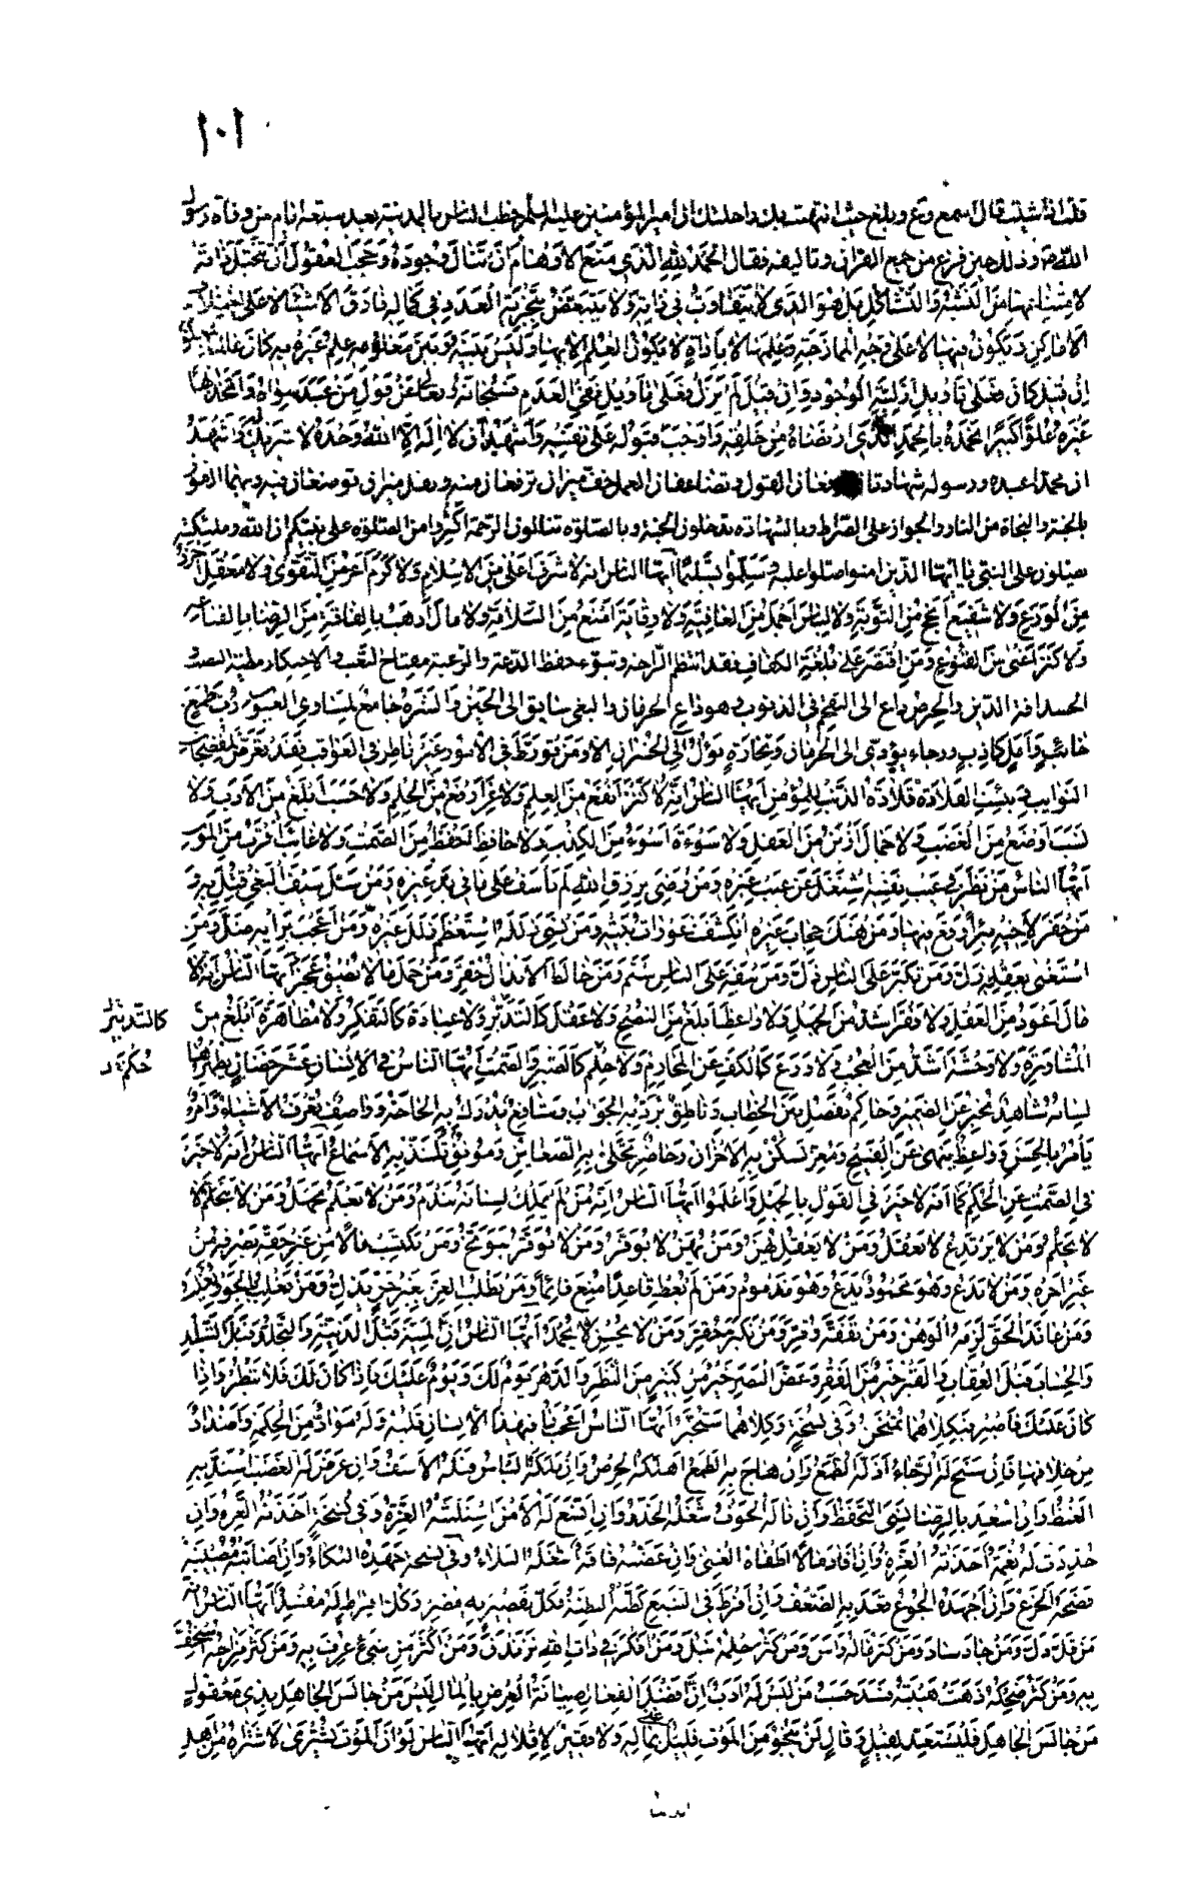 ١٠١
قلت اذا شئت قال اسمع وع وبلغ حيث انتهت بك راحلتك ان امير المؤمنين عليه السلم خطب الناس بالمدينة بعد سبعة ايام من وفاة رسول
الله ص وذلك حين فرغ من جمع القران وتاليفه فقال الحمد لله الذي منع الاوهام ان تنال وجوده وحجب العقول ان تتخيل ذاته
لامتناعها من الشبه والتشاكل بل هو الذي لا يتفاوت في ذاته ولا يتبعض بتجزية العدد في كماله فارق الاشياء لا على اختلاف
الاماكن ويكون فيها لا على وجه الممازجة وعلمها لا باداة لا يكون العلم الا بها وليس بينه وبين معلومه علم غيره به كان عالما بمعلومه
ان قيل كان فعلى تاويل ازلية الوجود وان قيل لم يزل فعلى تاويل نفي العدم فسبحانه وتعالى عن قول من عبد سواه واتخذ الها
غيره علوا كبيرا نحمده بالحمد الذي ارتضاه من خلقه واوجب قبوله على نفسه واشهد ان لا اله الا الله وحده لا شريك له واشهد
ان محمدا عبده ورسوله شهادتان ترفعان القول وتضاعفان العمل خف ميزان ترفعان منه وثقل ميزان توضعان فيه وبهما الفوز
بالجنة والنجاة من النار والجواز على الصراط وبالشهادة تدخلون الجنة وبالصلوة تنالون الرحمة اكثروا من الصلوة على نبيكم ان الله وملئكته
يصلون على النبي يا ايها الذين امنوا صلوا عليه وسلموا تسليما ايها الناس انه لا شرف اعلى من الاسلام ولا كرم اعز من التقوى ولا معقل احرز
من الورع ولا شفيع انجح من التوبة ولا لباس اجمل من العافية ولا وقاية امنع من السلامة ولا مال اذهب بالفاقة من الرضا بالقناعة
ولا كنز اغنى من القنوع ومن اقتصر على بلغة الكفاف فقد انتظم الراحة وتبوء خفض الدعة والرغبة مفتاح التعب والاحتكار مطية النصب
الحسد افة الدين والحرص داع الى التقحم في الذنوب وهو داع الحرمان والبغي سايق الى الحين والشره جامع لمساوي العيوب رب طمع
خائب وامل كاذب ورجاء يؤدي الى الحرمان وتجارة تؤل الى الخسران الا ومن تورط في الامور غير ناظر في العواقب فقد تعرض لمفضحات
النوايب وبئست القلادة قلادة الذنب للمؤمن ايها الناس انه لا كنز انفع من العلم ولا عز ارفع من الحلم ولا حسب ابلغ من الادب ولا
نسب اوضع من الغضب ولا جمال ازين من العقل ولا سوءة اسوء من الكذب ولا حافظ احفظ من الصمت ولا غائب اقرب من الموت
ايها الناس من نظر في عيب نفسه اشتغل عن عيب غيره ومن رضي برزق الله لم ياسف على ما في يد غيره ومن سل سيف البغي قتل به و
من حفر لاخيه بئرا وقع فيها ومن هتك حجاب غيره انكشف عورات بيته ومن نسي زلله استعظم زلل غيره ومن اعجب برايه ضل ومن
استغنى بعقله زل ومن تكبر على الناس ذل ومن سفه على الناس شتم ومن خالط الانذال حقر ومن حمل ما لا يطيق عجز ايها الناس انه لا
مال اعود من العقل ولا فقر اشد من الجهل ولا واعظ ابلغ من النصح ولا عقل كالتدبر ولا عبادة كالتفكر ولا مظاهرة ابلغ من
كالتدبير
المشاورة ولا وحشة اشد من العجب ولا ورع كالكف عن المحارم ولا حلم كالصبر والصمت ايها الناس في الانسان عشر خصال يظهرها
حكم
لسانه شاهد يخبر عن الضمير وحاكم يفصل بين الخطاب وناطق يرد به الجواب وشافع يدرك به الحاجة وواصف يعرف به الاشياء وامر
يامر بالحسن وواعظ ينهى عن القبيح ومعز تسكن به الاحزان وحاضر تجلى به الضغاين ومونق تلتذ به الاسماع ايها الناس انه لا خير
في الصمت عن الحكم كما انه لا خير في القول بالجهل واعلموا ايها الناس انه من لم يملك لسانه يندم ومن لا يعلم يجهل ومن لا يتحلم لا
لا يحلم ومن لا يرتدع لا يعقل ومن لا يعقل يهن ومن يهن لا يوقر ومن لا يوقر يتوبخ ومن يكتسب مالا من غير حقه يصرفه من
غير اجره ومن لا يدع وهو محمود يدع وهو مذموم ومن لم يعط قاعدا منع قائما ومن يطلب العز بغير حق يذل ومن يغلب بالجور يغلب
ومن عاند الحق لزمه الوهن ومن تفقه وقر ومن تكبر حقر ومن لا يحسن لا يحمد ايها الناس ان المنية قبل الدنية والتجلد قبل التبلد
والحساب قبل العقاب والقبر خير من الفقر وغض البصر خير من كثير من النظر والدهر يوم لك ويوم عليك فاذا كان لك فلا تبطر واذا
كان عليك فاصبر فبكلاهما تمتحن وفي نسخة وكلاهما ستختبر ايها الناس اعجب ما في هذا الانسان قلبه وله مواد من الحكمة واضداد
من خلافها فان سنح له الرجاء اذله الطمع وان هاج به الطمع اهلكه الحرص وان ملكه الياس قتله الاسف وان عرض له الغضب اشتد به
الغيظ وان اسعد بالرضا نسي التحفظ وان ناله الخوف شغله الحذر وان اتسع له الامن استلبته الغرة وفي نسخة اخذته العزة وان
جددت له نعمة اخذته العزة وان افاد مالا اطغاه الغنى وان عضته فاقة شغله البلاء وفي نسخة جهده البكاء وان اصابته مصيبة
فضحه الجزع وان اجهده الجوع قعد به الضعف وان افرط في الشبع كظته البطنة فكل تقصير به مضر وكل افراط له مفسد ايها الناس انه
من قل ذل ومن جاد ساد ومن كثر ماله راس ومن كثر حلمه نبل ومن افكر في ذات الله تزندق ومن اكثر من شيء عرف به ومن كثر مزاحه استخف
به ومن كثر ضحكه ذهبت هيبته فسد حسب من ليس له ادب ان افضل الفعال صيانة العرض بالمال ليس من جالس الجاهل بذي معقول
من جالس الجاهل فليستعد لقيل وقال لن ينجو من الموت غني بماله ولا فقير لاقلاله ايها الناس لو ان الموت يشترى لاشتراه من اهل